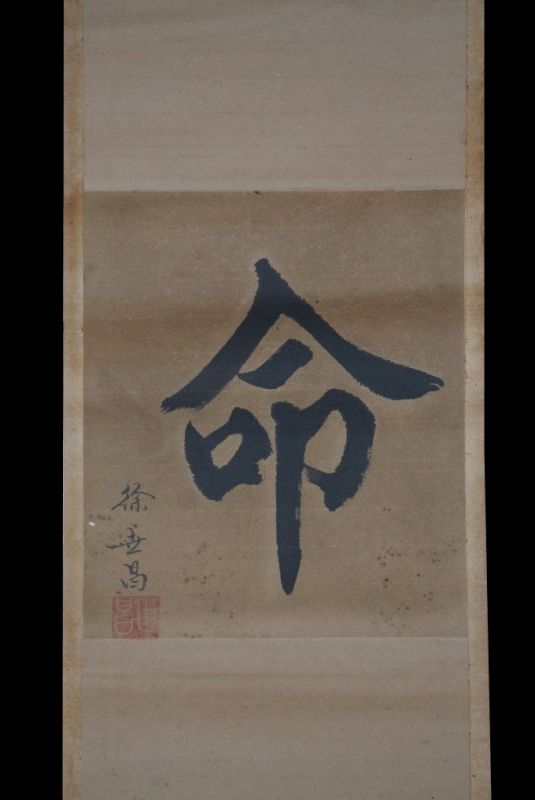 命
徐世昌